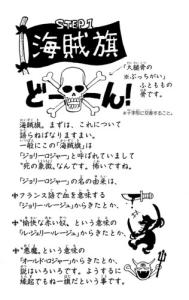 STEP 1
海賊旗
「大腿骨の
※ぶっちがい」
ふとももの
骨です。
どーーん!
※十字形に交差すること。
海賊旗。まずは、これについて
語らねばなりますまい。
一般にこの「海賊旗」は
「ジョリー・ロジャー」と呼ばれていまして
"死の象徴"なんです。怖いですね。
「ジョリー・ロジャー」の名の由来は、
フランス語で血を意味する
「ジョリー・ルージュ」からきたとか、
"愉快な赤い奴。という意味の
「ル・ジョリー・ルージュ」からきたとか、
"悪魔。という意味の
「オールド・ロジャー」からきたとか、
説はいろいろです。ようするに
縁起でもねー旗だという事です。